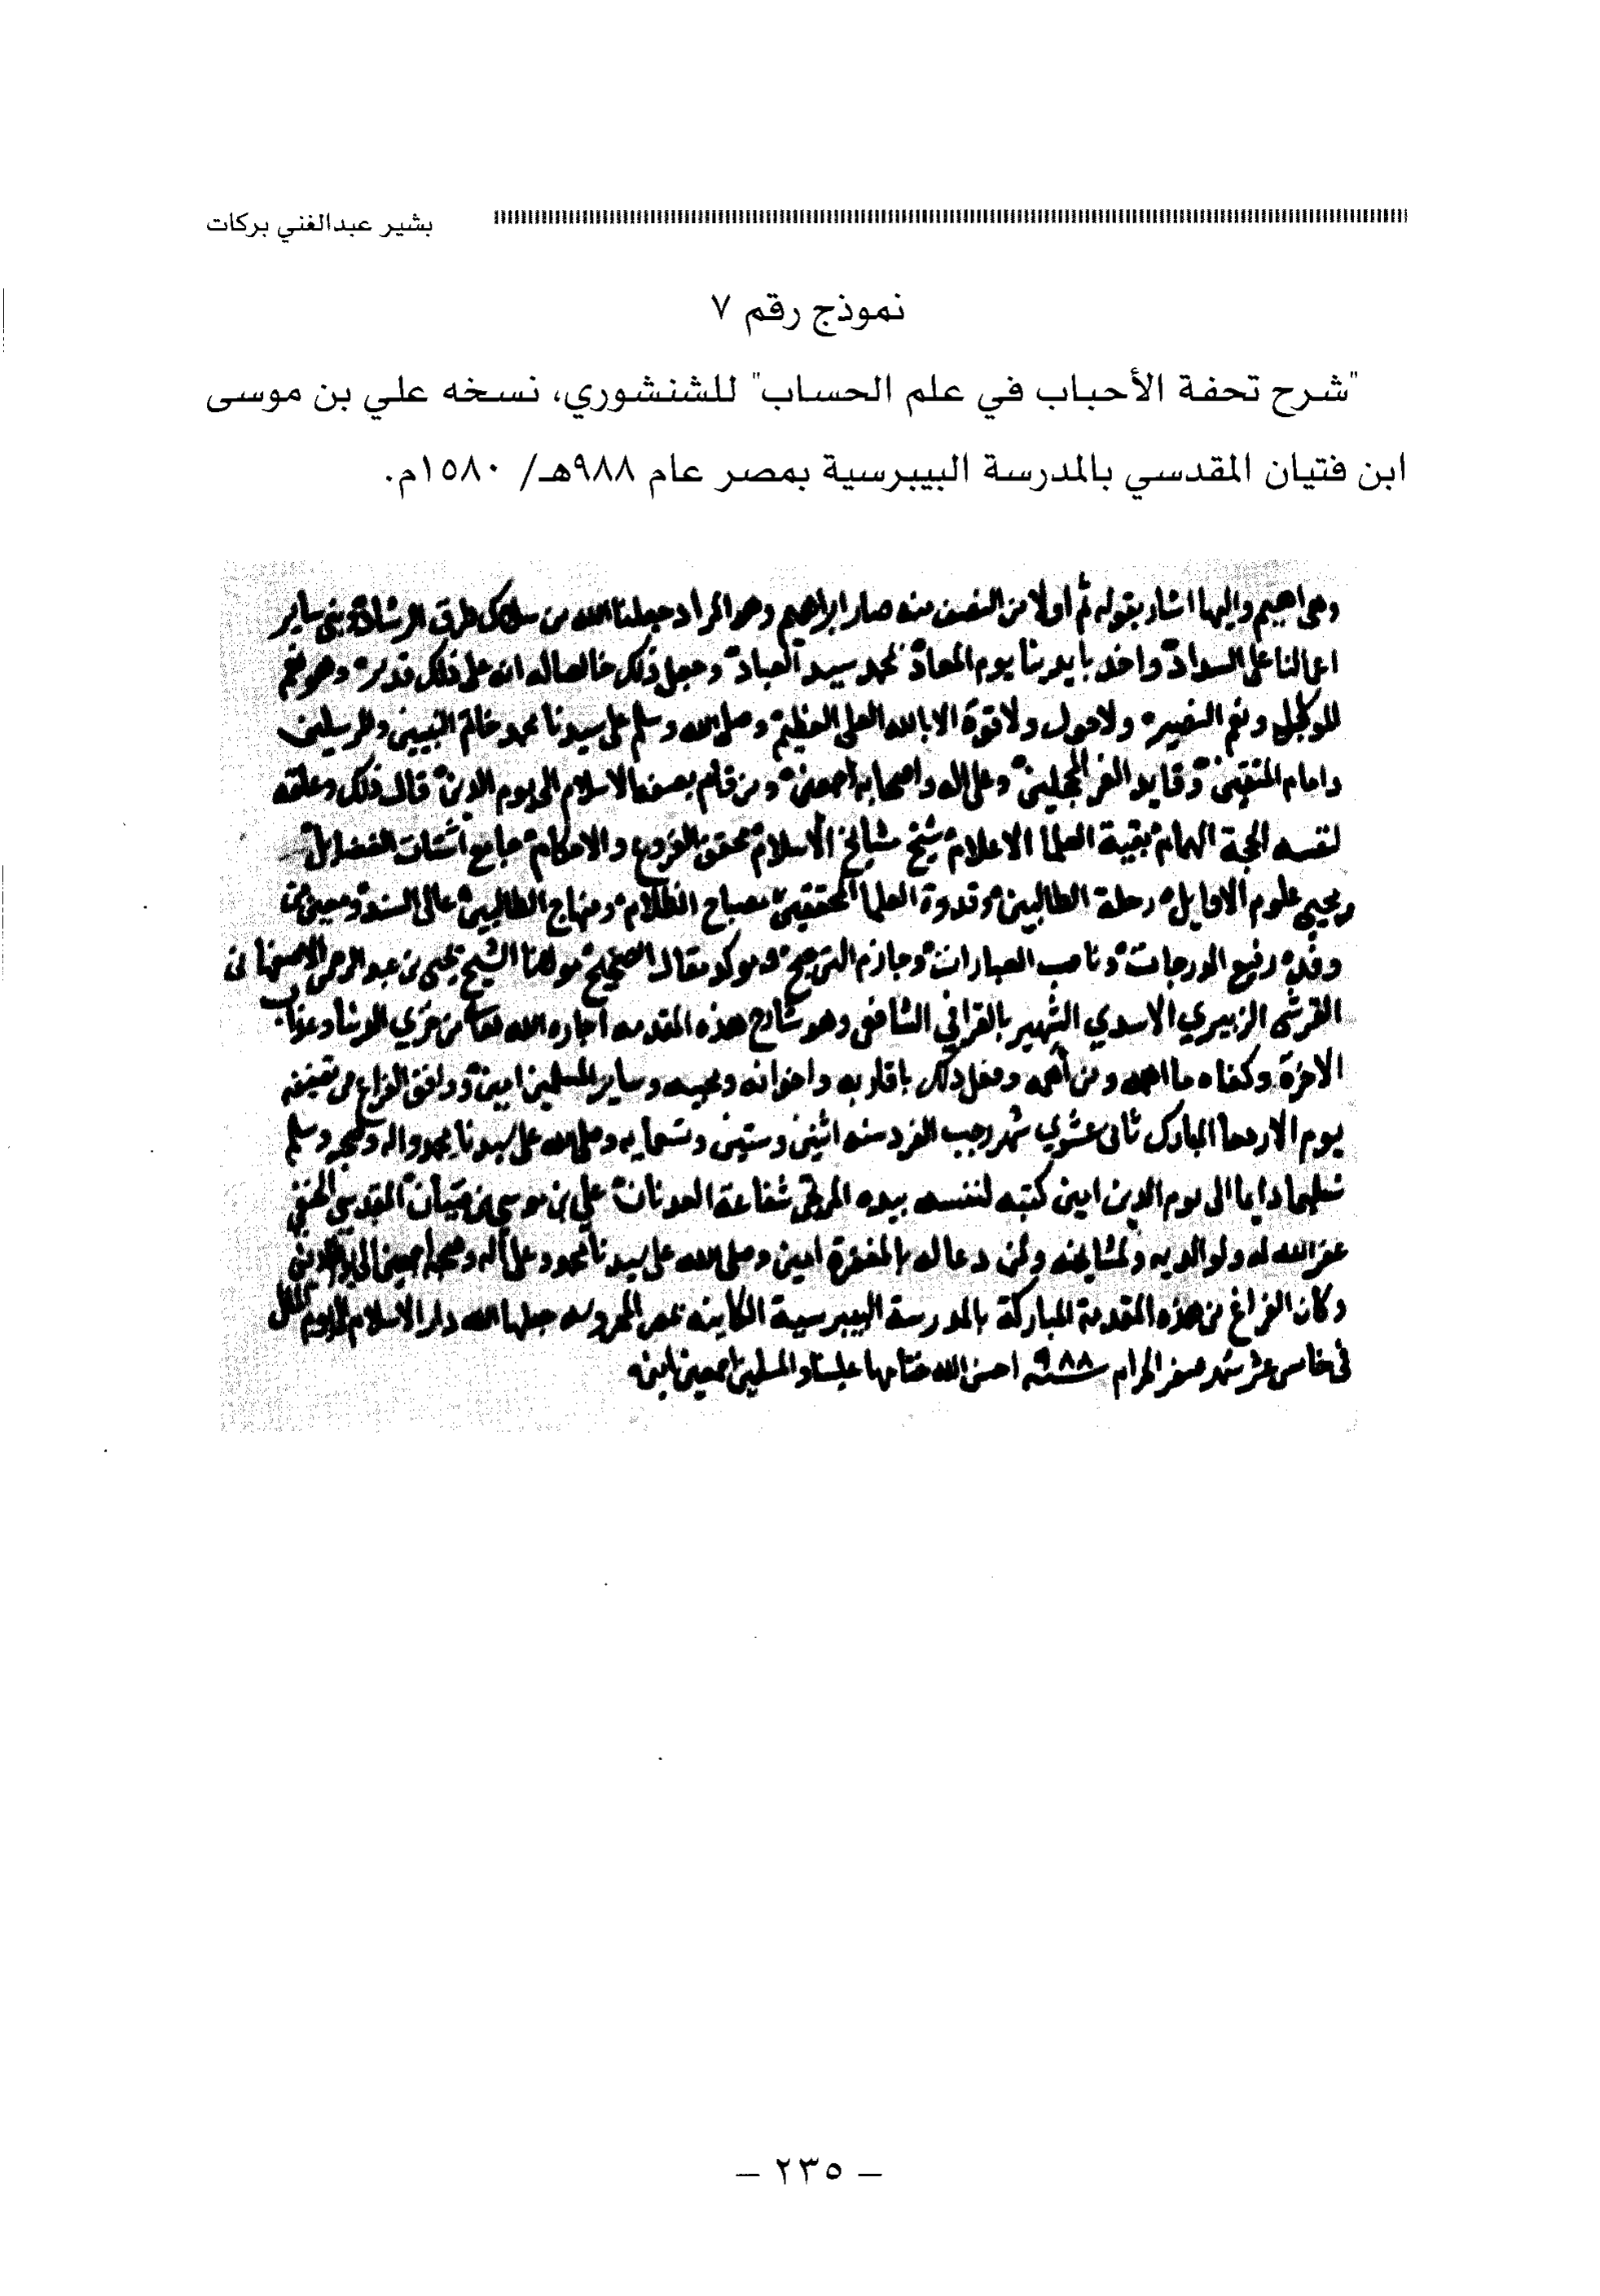 بشير عبدالغني بركات
نموذج رقم ٧
"شرح تحفة الأحباب في علم الحساب" للشنشوري، نسخه علي بن موسى
ابن فتيان المقدسي بالمدرسة البيبرسية بمصر عام ٩٨٨هـ/ ١٥٨٠م.
وهي اهيم واليها اشار بقوله ثم اولا من النصف منه صار ابراهيم وهو المراد جعلنا الله من سلك طرق الرشاد وبنى ساير
اعمالنا على السداد واخذ بايدينا يوم المعاد بمحمد سيد العباد وجعل ذلك خالصا له انه على ذلك قدير وهو نعم
الوكيل ونعم النصير ولا حول ولا قوة الا بالله العلي العظيم وصلى الله وسلم على سيدنا محمد خاتم النبيين والمرسلين
وامام المتقين وقايد الغر المحجلين وعلى اله واصحابه اجمعين ومن قام بصفه الاسلام الى يوم الدين قال ذلك وعلقه
لنفسه الحجة الهمام بقية العلما الاعلام شيخ مشايخ الاسلام محقق الفروع والاحكام جامع اشتات الفضايل
ومحيي علوم الاوايل رحلة الطالبين وقدوة العلما المحققين مصباح الظلام ومنهاج الطالبين عالى السند ومعين من
وفد رفيع الدرجات وناصب العبارات وجازم الترجيح وموكد مقال الصحيح مولانا الشيخ يحيى بن عبد الرحمن الاصفهاني
القرشي الزبيري الاسدي الشهير بالقرافي الشافعي وهو شارح هذه المقدمه اجاره الله تعالى من خزي الدنيا وعذاب
الاخرة وكفاه ما اهمه ومن اهمه وفعل ذلك باقاربه واخوانه ومحبيه وساير المسلمين امين ووافق الفراغ من تصنيفه
يوم الاربعا المبارك ثاني عشري شهر رجب الفرد سنه اثنين وستين وتسعمايه وصلى الله على سيدنا محمد واله وصحبه وسلم
تسليما دايما الى يوم الدين امين كتبه لنفسه بيده المرتجي شفاعة العدنان علي بن موسى بن فتيان المقدسي الحنفي
غفر الله له ولوالديه ولمشايخه ولمن دعا له بالمغفرة امين وصلى الله على سيدنا محمد وعلى اله وصحبه اجمعين الى يوم الدين
وكان الفراغ من هذه المقدمة المباركة بالمدرسة البيبرسية الكاينه بمصر المحروسه جعلها الله دار الاسلام
في خامس عشر شهر صفر الحرام سنة ٩٨٨ احسن الله ختامها علينا والمسلمين اجمعين امين
– ٢٣٥ –